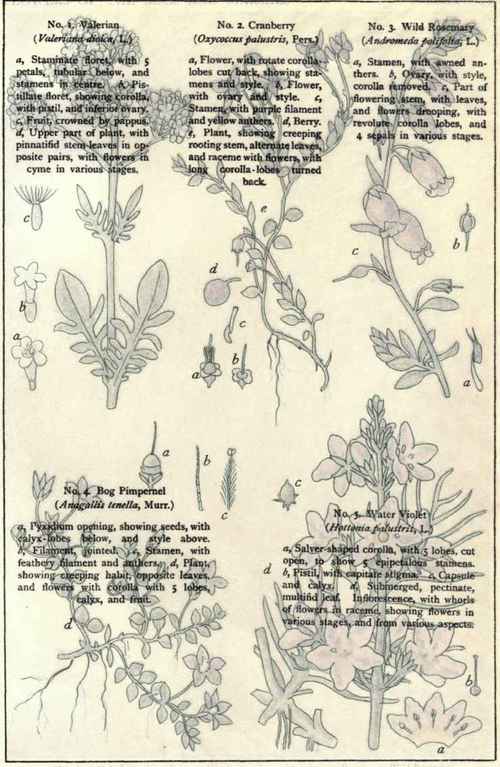 No. 1. Valerian
(Valeriana dioica, L.)
a, Staminate floret, with 5
petals, tubular below, and
stamens in centre. b, Pis-
tillate floret, showing corolla,
with pistil, and inferior ovary.
c, Fruit, crowned by pappus.
d, Upper part of plant, with
pinnatifid stem-leaves in op-
posite pairs, with flowers in
cyme in various stages.
No. 2. Cranberry
(Oxycoccus palustris, Pers.)
a, Flower, with rotate corolla-
lobes cut back, showing sta-
mens and style. b, Flower,
with ovary and style. c,
Stamen, with purple filament
and yellow anthers. d, Berry.
e, Plant, showing creeping
rooting stem, alternate leaves,
and raceme with flowers, with
long corolla-lobes turned
back.
No. 3. Wild Rosemary
(Andromeda polifolia, L.)
a, Stamen, with awned an-
thers. b, Ovary, with style,
corolla removed. c, Part of
flowering stem, with leaves,
and flowers drooping, with
revolute corolla lobes, and
4 sepals in various stages.
c
b
a
e
d
c
a
b
c
b
a
a
b
c
No. 4. Bog Pimpernel
(Anagallis tenella, Murr.)
a, Pyxidium opening, showing seeds, with
calyx-lobes below, and style above.
b, Filament, jointed. c, Stamen, with
feathery filament and anthers. d, Plant,
showing creeping habit, opposite leaves,
and flowers with corolla with 5 lobes,
calyx, and fruit.
d
c
No. 5. Water Violet
(Hottonia palustris, L.)
a, Salver-shaped corolla, with 5 lobes, cut
open, to show 5 epipetalous stamens.
b, Pistil, with capitate stigma. c, Capsule
and calyx. d, Submerged, pectinate,
multifid leaf. Inflorescence, with whorls
of flowers in raceme, showing flowers in
various stages, and from various aspects.
d
b
a